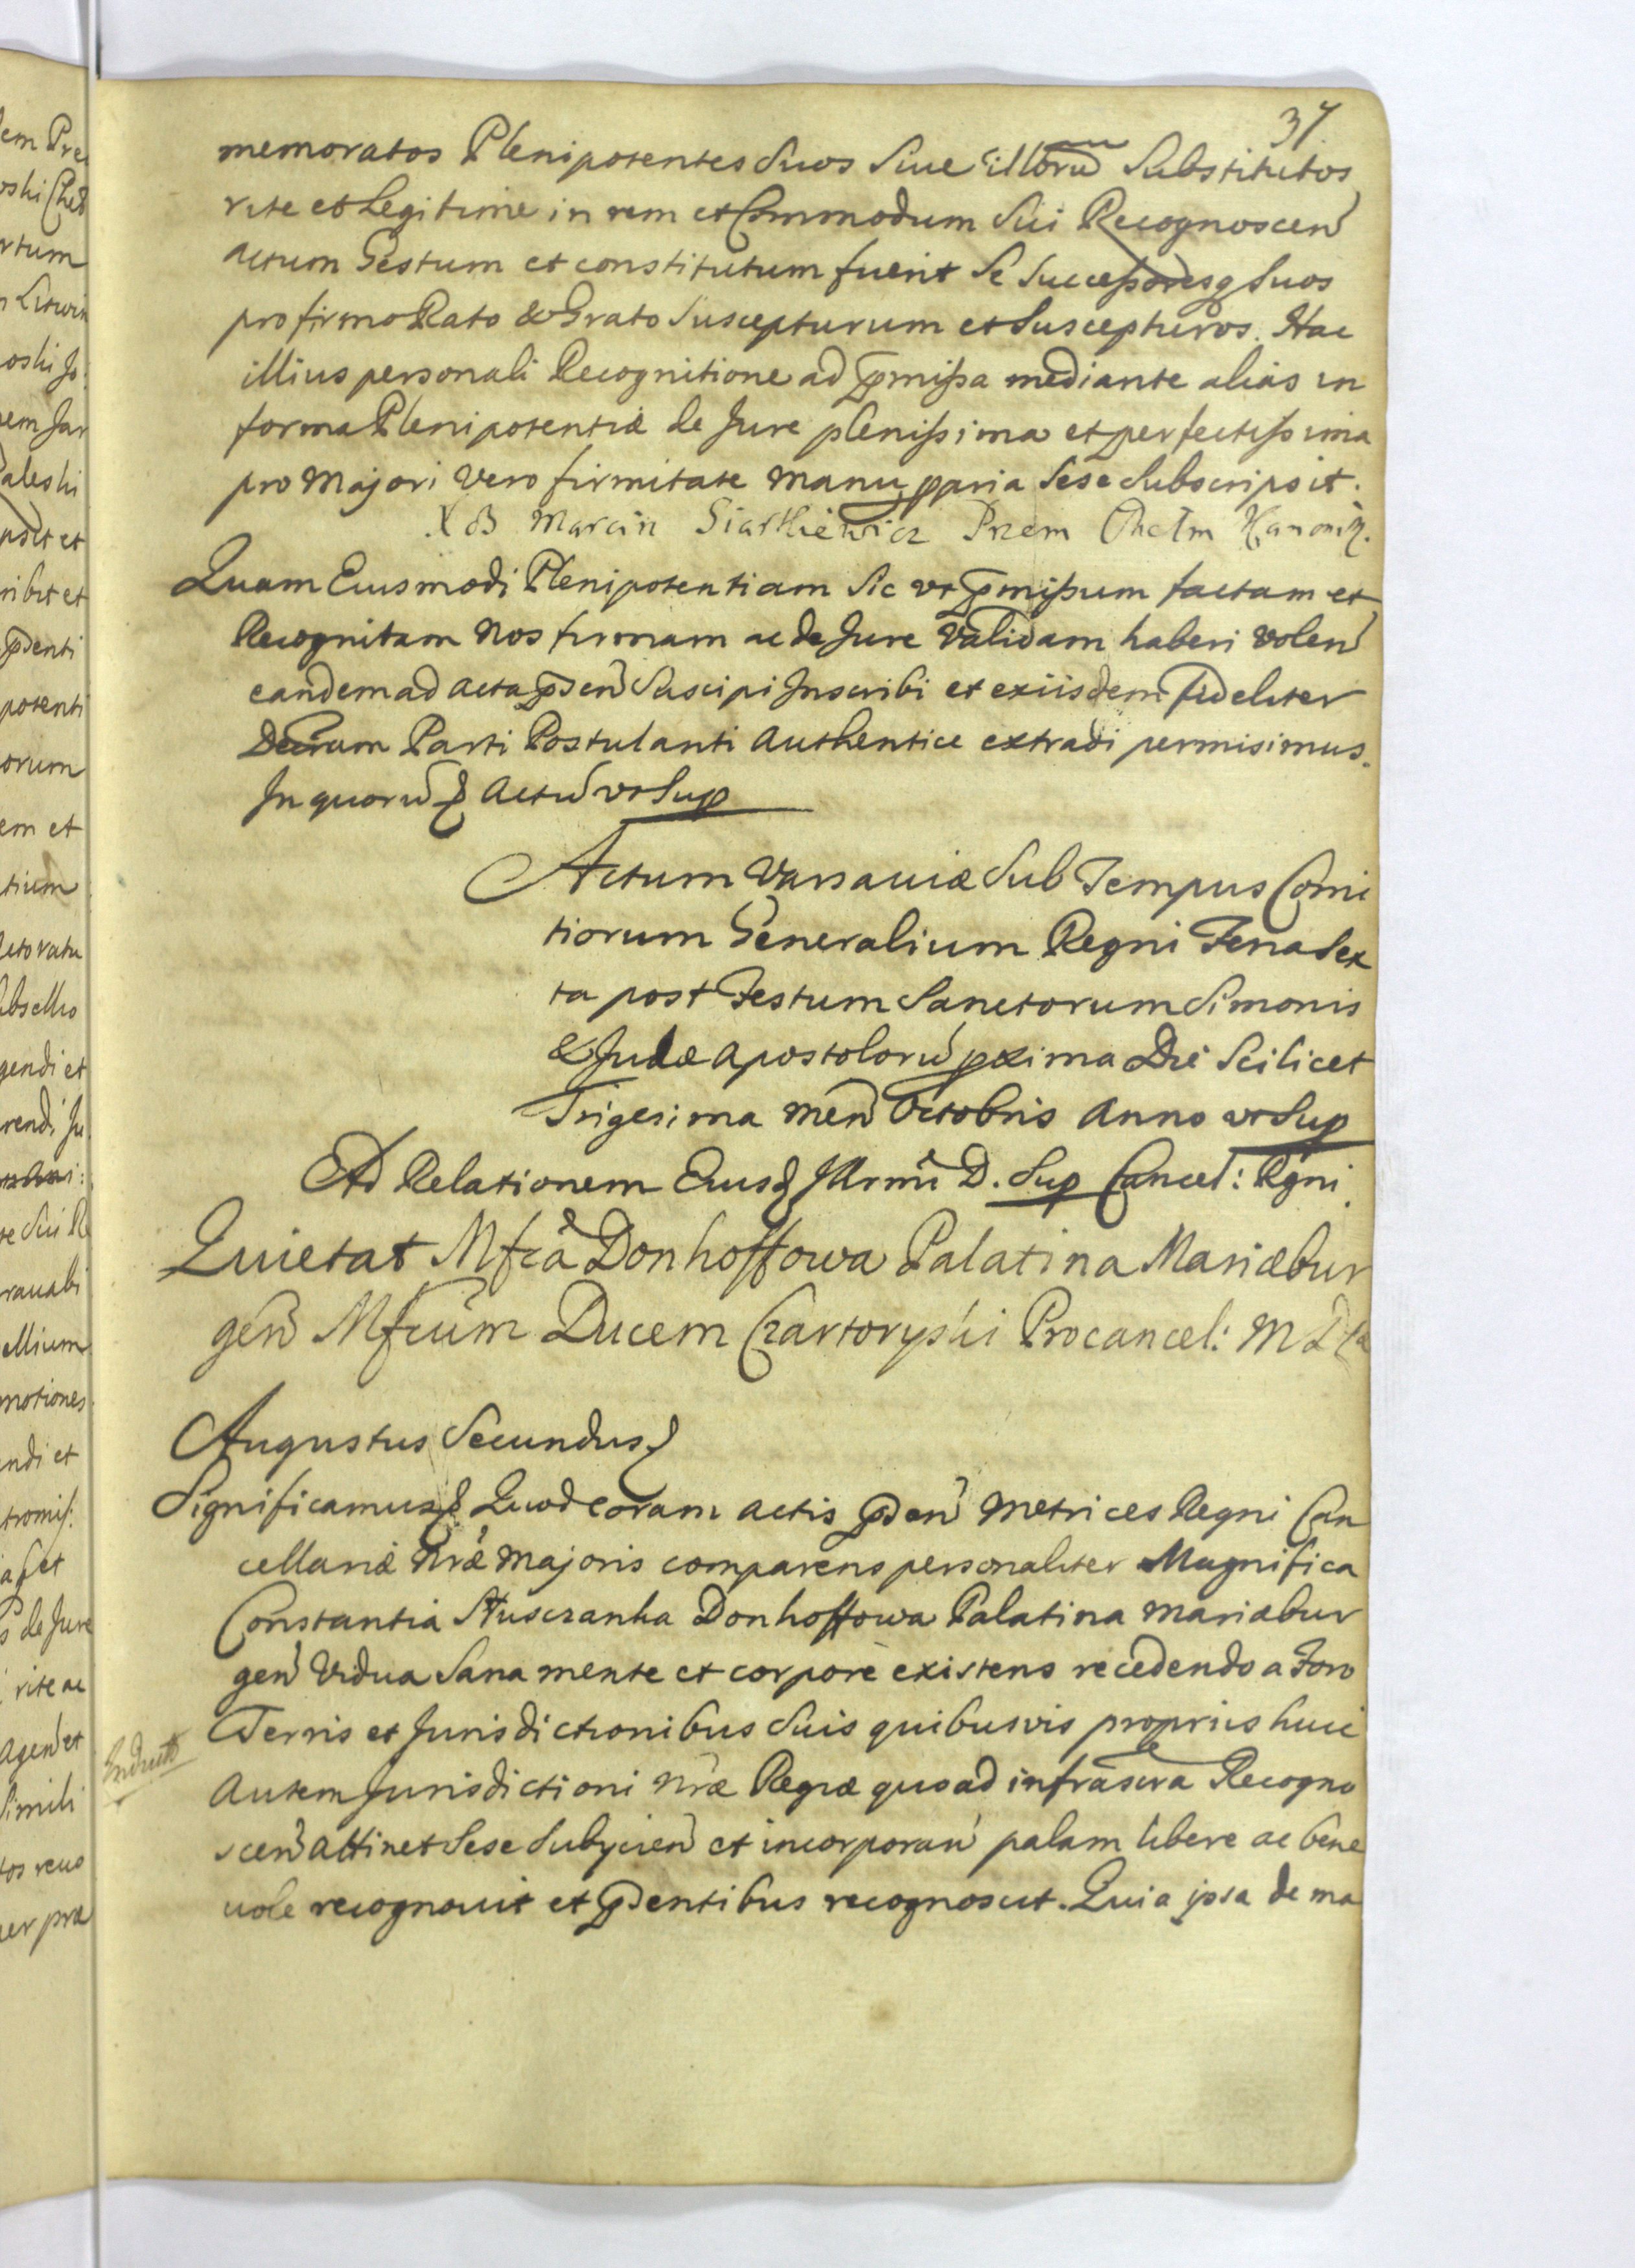 37
memoratos Plenipotentes Suos Siue illorũ Substitutos
rite et Legitime in rem et Commodum Sui Recognoscen
actum Gestum et constitutum fuerit Se Successoresq Suos
pro firmo Rato & Grato Suscepturum et Suscepturos. Hac
illius personali Recognitione ad pmissa mediante alias in
forma Plenipotentiæ de Jure plenissima et perfectissima
pro Majori vero firmitate manu ppria Sese Subscripsit.
X B Marcin Siarkiewicz Przem Chełm Kanonik.
Quam Eiusmodi Plenipotentiam Sic vt pmissum factam et
Recognitam Nos firmam ac de Jure Validam haberi volen
eandem ad acta psen Suscipi Inscribi et ex iisdem fideliter
Parti Postulanti Authentice extradi permisimus.
In quorũ & Actũ vt Sup
Actum Varsauiæ Sub Tempus Comi
tiorum Generalium Regni Feria Sex
ta post Festum Sanctorum Simonis
& Judæ Apostolorũ pxima Die Scilicet
Trigesima men Octobris Anno vt Sup
Ad Relationem Eiusd Illrmi D. Sup Cancel: Rgni
Quietat Mfca Donhoffowa Palatina Mariæbur
gen Mfcum Ducem Czartoryski Procancel: M D L
Augustus Secundus &
Significamus & Quod coram actis psen Metrices Regni Can
cellariæ Nræ Majoris comparens personaliter Magnifica
Constantia Słuszanka Donhoffowa Palatina Mariæbur
gen Vidua Sana mente et corpore existens recedendo a Foro
Terris et Jurisdictionibus Suis quibusvis propriis huic
Autem Jurisdictioni Nræ Regiæ quoad infrascra Recogno
scen attinet Sese Subycien et incorporan palam libere ac bene
uole recognouit et psentibus recognoscit. Quia ipsa de ma